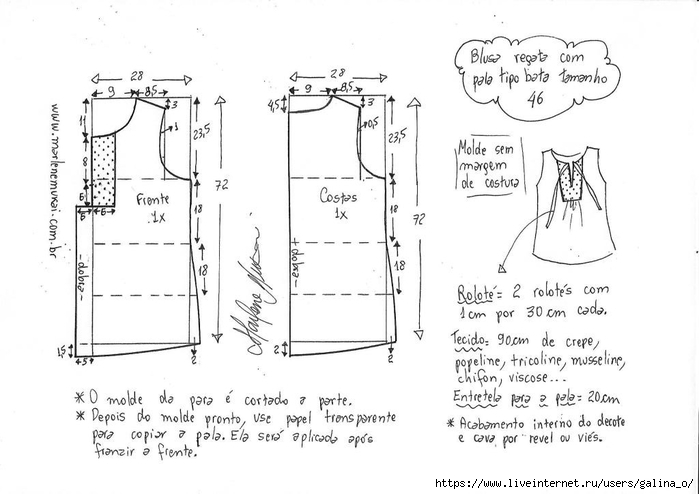 Blusa regata com
pala tipo bata tamanho
46
28
9
8,5
3
11
1
23,5
8
6
6
6
18
18
72
Frente
1x
-dobra-
1,5
4,5
2
www.marlenemukai.com.br
28
9
8,5
4,5
3
0,5
23,5
Costas
1x
18
18
72
-dobra-
2
2
Marlene Mukai
Molde sem
margem
de costura
Roloté = 2 rolotés com
1cm por 30cm cada.
Tecido = 90cm de crepe,
popeline, tricoline, musseline,
chifon, viscose...
Entretela para a pala = 20cm
* Acabamento interno do decote
e cava, por revel ou viés.
* O molde da para é cortado a parte.
* Depois do molde pronto, use papel transparente
para copiar a pala. Ela será aplicada após
franzir a frente.
https://www.liveinternet.ru/users/galina_o/